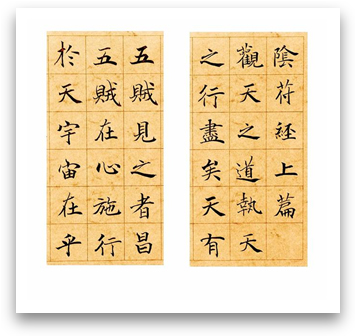 陰苻經上篇
觀天之道執天
之行盡矣天有
五賊見之者昌
五賊在心施行
於天宇宙在乎